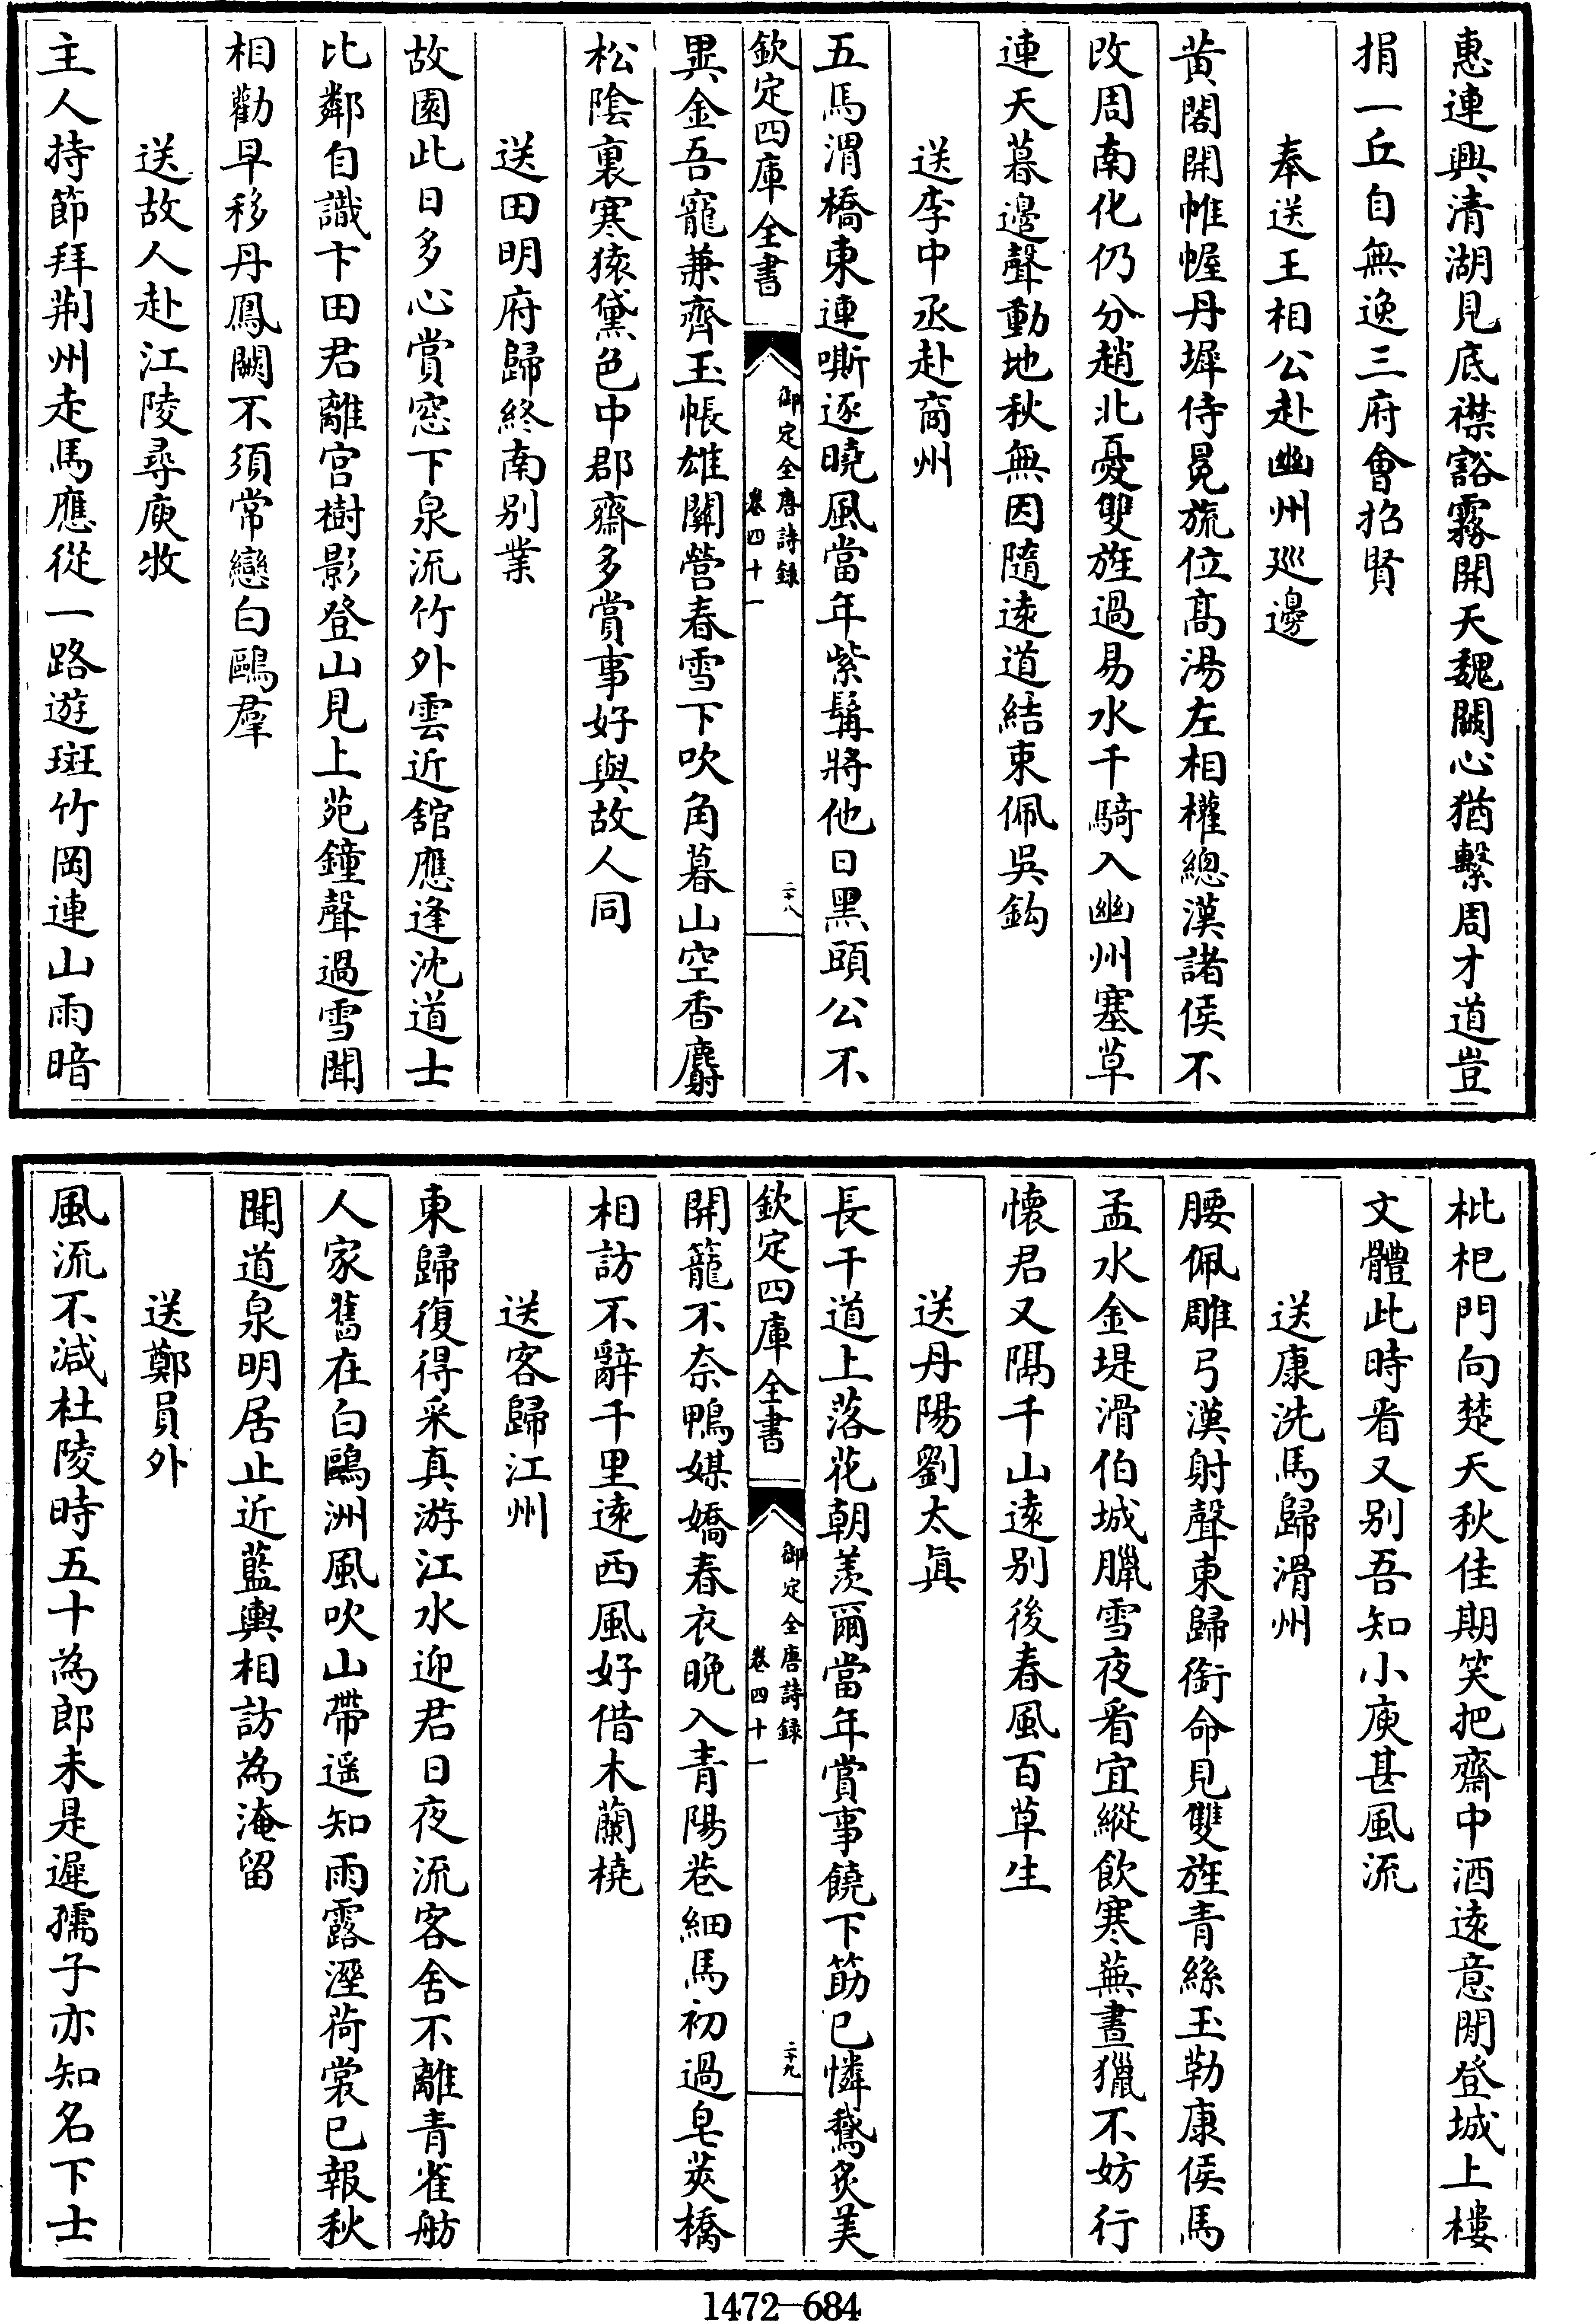 惠連興清湖見底襟豁霧開天魏闕心猶繫周才道豈
捐一丘自無逸三府會招賢
奉送王相公赴幽州廵邊
黃閣開帷幄丹墀侍冕旒位髙湯左相權總漢諸侯不
改周南化仍分趙北憂雙旌過易水千騎入幽州塞草
連天暮邊聲動地秋無因隨逺道結束佩吳鈎
送李中丞赴商州
五馬渭橋東連嘶逐曉風當年紫髯將他日黑頭公不
欽定四庫全書
御定全唐詩録
卷四十一
二十八
異金吾寵兼齊玉帳雄關營春雪下吹角暮山空香麝
松陰裏寒猿黛色中郡齋多賞事好與故人同
送田明府歸終南别業
故園此日多心賞窓下泉流竹外雲近舘應逢沈道士
比鄰自識卞田君離宫樹影登山見上苑鐘聲過雪聞
相勸早移丹鳳闕不須常戀白鷗羣
送故人赴江陵尋庾牧
主人持節拜荆州走馬應從一路遊斑竹岡連山雨暗
枇杷門向楚天秋佳期笑把齋中酒逺意閒登城上樓
文體此時看又别吾知小庾甚風流
送康洗馬歸滑州
腰佩雕弓漢射聲東歸銜命見雙旌青絲玉勒康侯馬
孟水金堤滑伯城臘雪夜看宜縱飲寒蕪晝獵不妨行
懷君又隔千山逺别後春風百草生
送丹陽劉太真
長干道上落花朝羡爾當年賞事饒下筯已憐鵞炙美
欽定四庫全書
御定全唐詩録
卷四十一
二十九
開籠不奈鴨媒嬌春衣晚入青陽巷細馬初過皂莢橋
相訪不辭千里逺西風好借木蘭橈
送客歸江州
東歸復得采真游江水迎君日夜流客舍不離青雀舫
人家舊在白鷗洲風吹山帶遥知雨露溼荷裳已報秋
聞道泉明居止近藍輿相訪為淹留
送鄭員外
風流不減杜陵時五十為郎未是遲孺子亦知名下士
1472—684